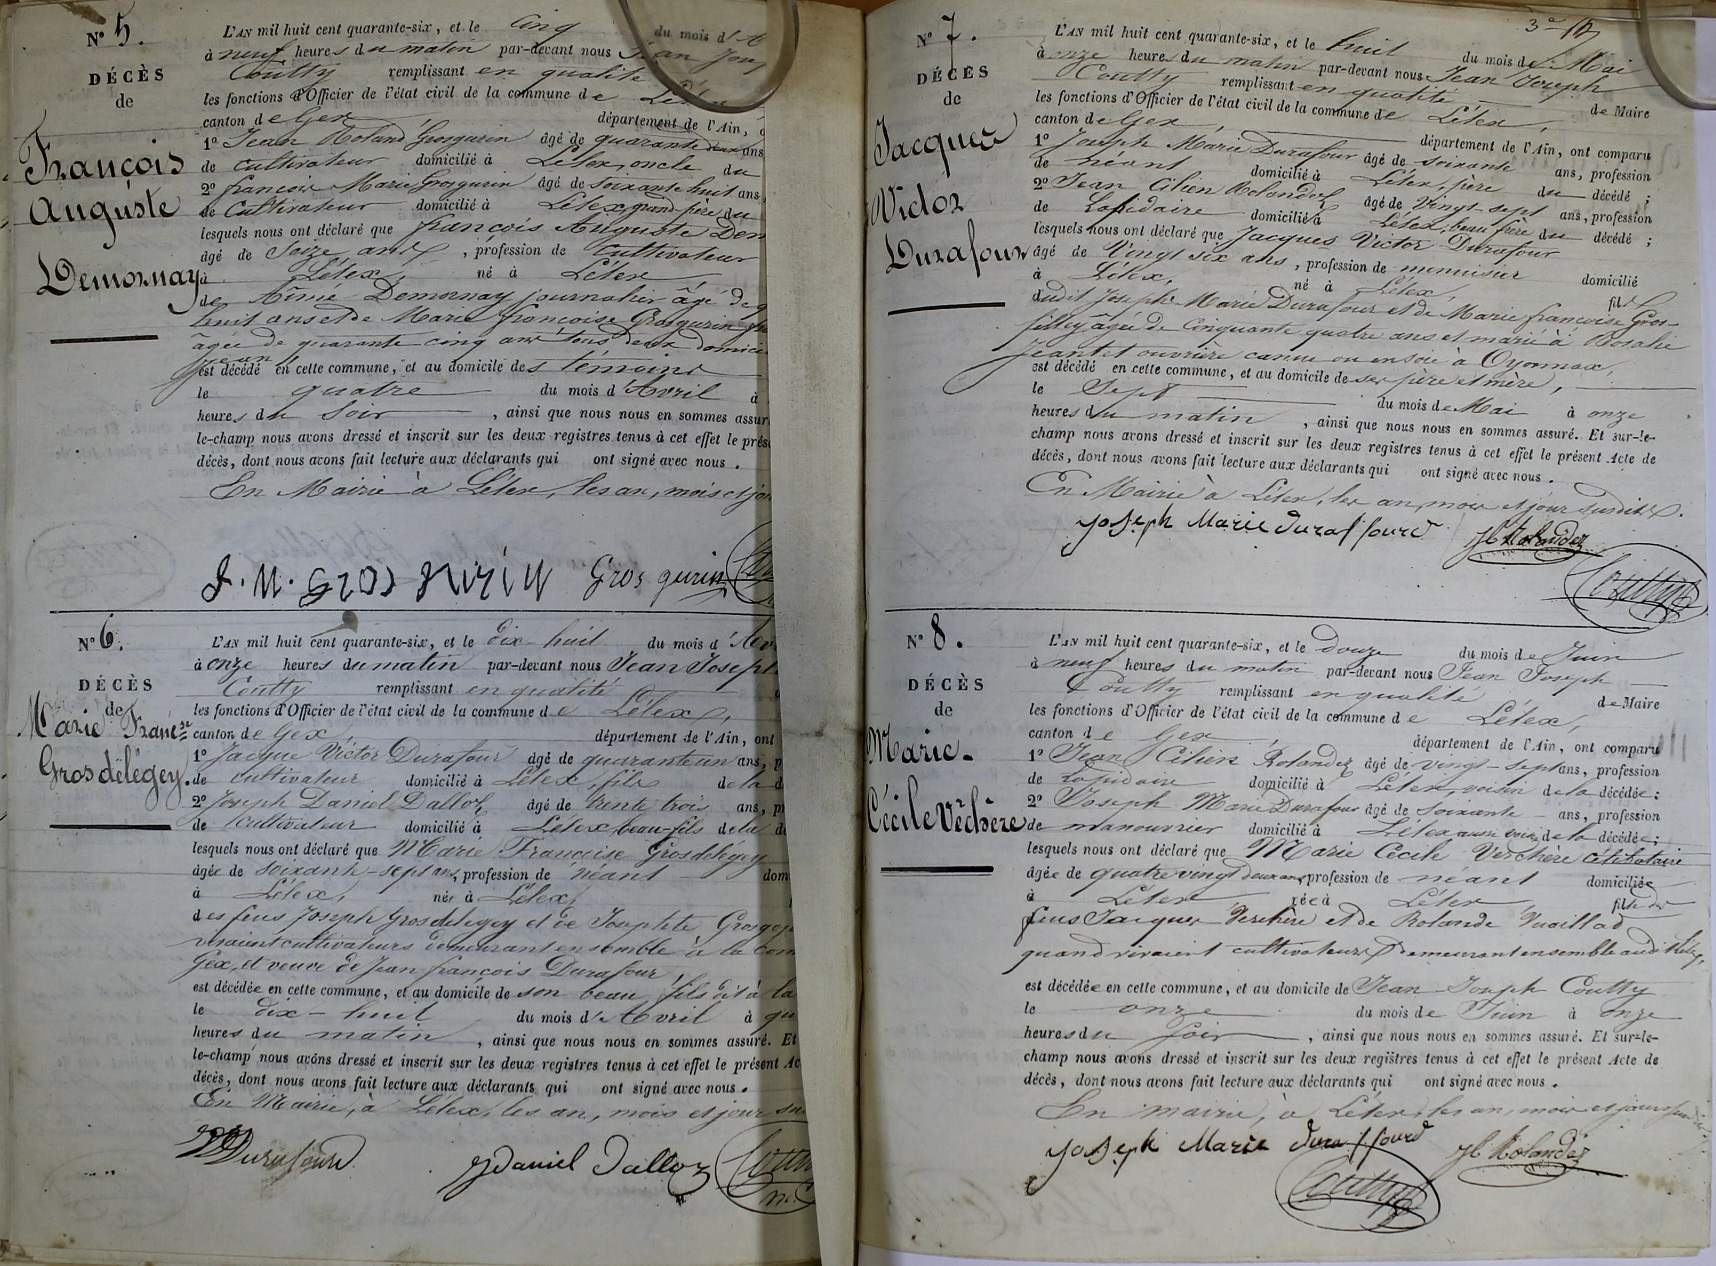 N° 5.
DÉCÈS
de
François
Auguste
Demornay
L'AN mil huit cent quarante-six, et le Cinq du mois d'A
à neuf heures du matin par-devant nous Jean Jos
Coutty remplissant en qualité
les fonctions d'Officier de l'état civil de la commune de Lélex
canton de Gex département de l'Ain,
1° Jean Roland Grosgurin âgé de quarante deux ans
de cultivateur domicilié à Lélex, oncle du
2° françois Marie Grosgurin âgé de soixante huit ans
de Cultivateur domicilié à Lélex, grand-père du
lesquels nous ont déclaré que françois Auguste Dem
âgé de Seize ans, profession de cultivateur
à Lélex, né à Lélex
de Aimé Demornay journalier âgé de q
huit ans et de Marie françoise Grosgurin
âgée de quarante cinq ans tous deux domici
est décédé en cette commune, et au domicile des témoins
le quatre du mois d'Avril à
heures du Soir, ainsi que nous nous en sommes assur
le-champ nous avons dressé et inscrit sur les deux registres tenus à cet effet le prés
décès, dont nous avons fait lecture aux déclarants qui ont signé avec nous.
En Mairie à Lélex, les an, mois et jou
J. M. GROS GURIN Gros gurin
N° 6.
DÉCÈS
de
Marie Franç.se
Grosdelégey.
L'AN mil huit cent quarante-six, et le dix-huit du mois d'Av
à onze heures du matin par-devant nous Jean Joseph
Coutty remplissant en qualité
les fonctions d'Officier de l'état civil de la commune de Lélex,
canton de Gex, département de l'Ain, ont
1° Jacque Victor Durafour âgé de quarante un ans, p
de cultivateur domicilié à Lélex, fils de la d
2° Joseph Daniel Dalloz âgé de trente trois ans, pr
de cultivateur domicilié à Lélex, beau-fils de la d
lesquels nous ont déclaré que Marie Françoise Grosdelégey
âgée de soixante-sept ans, profession de néant dom
à Lélex, née à Lélex,
des feus Joseph Grosdelegey et de Josephte Grosgu
vivaient cultivateurs demeurant ensemble à la com
Gex, et veuve de Jean françois Durafour
est décédée en cette commune, et au domicile de son beau fils dit à la
le dix-huit du mois d'Avril à qu
heures du matin, ainsi que nous nous en sommes assuré. Et
le-champ nous avons dressé et inscrit sur les deux registres tenus à cet effet le présent Ac
décès, dont nous avons fait lecture aux déclarants qui ont signé avec nous.
En Mairie, à Lélex, les an, mois et jour su
Durafour Jh daniel Dalloz
3e
N° 7.
DÉCÈS
de
Jacques
Victor
Durafour
L'AN mil huit cent quarante-six, et le huit du mois de Mai
à onze heures du matin par-devant nous Jean Joseph
Coutty remplissant en qualité de Maire
les fonctions d'Officier de l'état civil de la commune de Lélex,
canton de Gex, département de l'Ain, ont comparu
1° Joseph Marie Durafour âgé de soixante ans, profession
de néant domicilié à Lélex, père du décédé;
2° Jean Cilien Rolandez âgé de vingt-sept ans, profession
de Lapidaire domicilié à Lélex, beau frère du décédé;
lesquels nous ont déclaré que Jacques Victor Durafour
âgé de Vingt six ans, profession de menuisier domicilié
à Lélex, né à Lélex, fils
dudit Joseph Marie Durafour et de Marie françoise Gros-
filley âgée de Cinquante quatre ans et marié à Rosalie
Jeantet ouvrière canne ou en soie à Oyonnax,
est décédé en cette commune, et au domicile de ses père et mère,
le Sept du mois de Mai à onze
heures du matin, ainsi que nous nous en sommes assuré. Et sur-le-
champ nous avons dressé et inscrit sur les deux registres tenus à cet effet le présent Acte de
décès, dont nous avons fait lecture aux déclarants qui ont signé avec nous.
En Mairie à Lélex, les an, mois et jour susdits.
Joseph Marie duraffourd JC Rolandez
Coutty
N° 8.
DÉCÈS
de
Marie-
Cécile Verchère
L'AN mil huit cent quarante-six, et le douze du mois de Juin
à neuf heures du matin par-devant nous Jean Joseph
Coutty remplissant en qualité de Maire
les fonctions d'Officier de l'état civil de la commune de Lélex,
canton de Gex, département de l'Ain, ont comparu
1° Jean Cilien Rolandez âgé de vingt-sept ans, profession
de Lapidaire domicilié à Lélex, voisin de la décédée;
2° Joseph Marie Durafour âgé de soixante ans, profession
de manouvrier domicilié à Lélex aussi voisin de la décédée;
lesquels nous ont déclaré que Marie Cécile Verchère célibataire
âgée de quatre vingt deux ans, profession de néant domiciliée
à Lélex née à Lélex, fille de
feus Jacques Verchère et de Rolande Vuaillad
quand vivaient cultivateurs demeurant ensemble audit Lélex,
est décédée en cette commune, et au domicile de Jean Joseph Coutty
le onze du mois de Juin à onze
heures du soir, ainsi que nous nous en sommes assuré. Et sur-le-
champ nous avons dressé et inscrit sur les deux registres tenus à cet effet le présent Acte de
décès, dont nous avons fait lecture aux déclarants qui ont signé avec nous.
En mairie, à Lélex, les an, mois et jour susdits.
Joseph Marie duraffourd JC Rolandez
Coutty